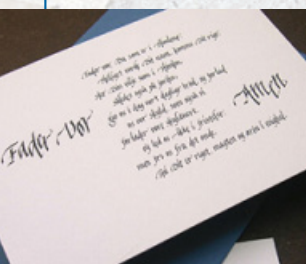 Fader Vor
Fader vor, Du som er i Himlene!
Helliget vorde Dit navn, komme Dit rige,
ske Din vilje som i Himlen,
således også på jorden,
giv os i dag vort daglige brød, og forlad
os vor skyld, som også vi
forlader vore skyldnere,
og led os ikke i fristelse,
men fri os fra det onde,
thi Dit er riget, magten og æren i evighed.
Amen